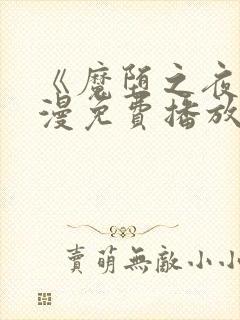 《魔陌之夜
漫免費播放
賣萌無敵小小